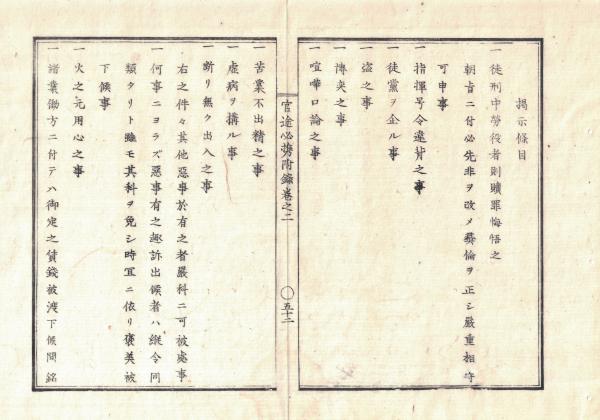 掲示條目
一 徒刑中勞役者則贖罪悔悟之
朝旨ニ付必先非ヲ改メ彜倫ヲ正シ嚴重相守
可申事
一 指揮号令違背之事
一 徒黨ヲ企ル事
一 盗之事
一 博奕之事
一 喧嘩口論之事
官途必携附録巻之二
〇五十二
一 苦業不出精之事
一 虚病ヲ搆ル事
一 斷リ無ク出入之事
右之件々其他惡事於有之者嚴科ニ可被處事
一 何事ニヨラズ惡事有之趣訴出候者ハ縦令同
類タリト雖モ其科ヲ免シ時宜ニ依リ褒美被
下候事
一 火之元用心之事
一 諸業働方ニ付テハ御定之賃錢被渡下候間銘